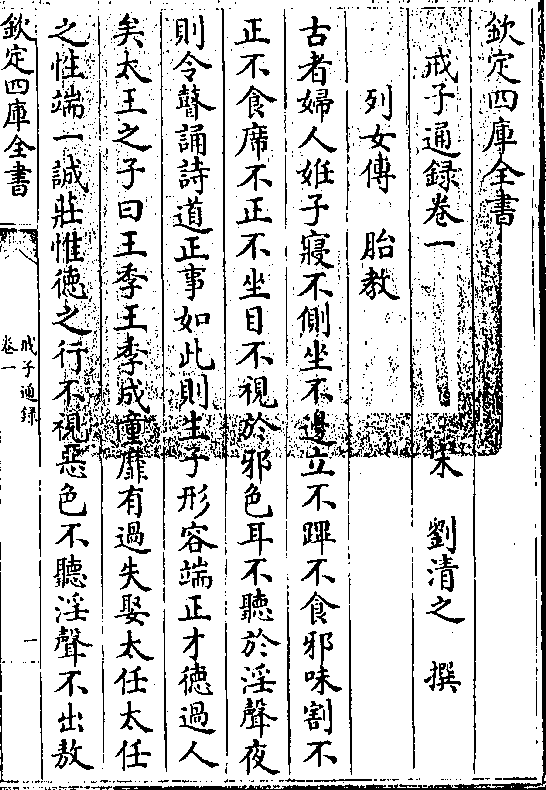 欽定四庫全書
戒子通録卷一
宋 劉清之 撰
列女傳 胎教
古者婦人姙子寢不側坐不邊立不蹕不食邪味割不
正不食席不正不坐目不視於邪色耳不聽於淫聲夜
則令瞽誦詩道正事如此則生子形容端正才徳過人
矣太王之子曰王季王季成童靡有過失娶太任太任
之性端一誠莊惟徳之行不視惡色不聽淫聲不出敖
欽定四庫全書
戒子通録
卷一
一